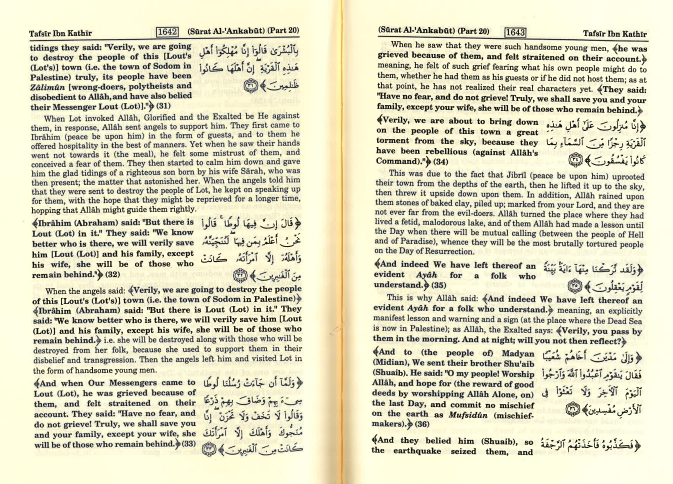 Tafsīr Ibn Kathīr 1642 (Sūrat Al-'Ankabūt) (Part 20)
tidings they said: "Verily, we are going
to destroy the people of this [Lout's
(Lot's)] town (i.e. the town of Sodom in
Palestine) truly, its people have been
Zālimūn [wrong-doers, polytheists and
disobedient to Allāh, and have also belied
their Messenger Lout (Lot)]."﴿ (31)
بِالْبُشْرَىٰ قَالُوٓا۟ إِنَّا مُهْلِكُوٓا۟ أَهْلِ
هَـٰذِهِ ٱلْقَرْيَةِ إِنَّ أَهْلَهَا كَانُوا۟
ظَـٰلِمِينَ ﴿٣١﴾
When Lot invoked Allāh, Glorified and the Exalted be He against
them, in response, Allāh sent angels to support him. They first came to
Ibrāhīm (peace be upon him) in the form of guests, and to them he
offered hospitality in the best of manners. Yet when he saw their hands
went not towards it (the meal), he felt some mistrust of them, and
conceived a fear of them. They then started to calm him down and gave
him the glad tidings of a righteous son born by his wife Sārah, who was
then present; the matter that astonished her. When the angels told him
that they were sent to destroy the people of Lot, he kept on speaking up
for them, with the hope that they might be reprieved for a longer time,
hopping that Allāh might guide them rightly.
﴾Ibrāhīm (Abraham) said: "But there is
Lout (Lot) in it." They said: "We know
better who is there, we will verily save
him [Lout (Lot)] and his family, except
his wife, she will be of those who
remain behind."﴿ (32)
﴿قَالَ إِنَّ فِيهَا لُوطًا ۚ قَالُوا۟
نَحْنُ أَعْلَمُ بِمَن فِيهَا ۖ لَنُنَجِّيَنَّهُۥ
وَأَهْلَهُۥٓ إِلَّا ٱمْرَأَتَهُۥ كَانَتْ
مِنَ ٱلْغَـٰبِرِينَ﴾
When the angels said: ﴾Verily, we are going to destroy the people
of this [Lout's (Lot's)] town (i.e. the town of Sodom in Palestine)﴿
﴾Ibrāhīm (Abraham) said: "But there is Lout (Lot) in it." They
said: "We know better who is there, we will verily save him [Lout
(Lot)] and his family, except his wife, she will be of those who
remain behind.﴿ i.e. she will be destroyed along with those who will be
destroyed from her folk, because she used to support them in their
disbelief and transgression. Then the angels left him and visited Lot in
the form of handsome young men.
﴾And when Our Messengers came to
Lout (Lot), he was grieved because of
them, and felt straitened on their
account. They said: "Have no fear, and
do not grieve! Truly, we shall save you
and your family, except your wife, she
will be of those who remain behind.﴿ (33)
﴿وَلَمَّآ أَن جَآءَتْ رُسُلُنَا لُوطًا
سِىٓءَ بِهِمْ وَضَاقَ بِهِمْ ذَرْعًا
وَقَالُوا۟ لَا تَخَفْ وَلَا تَحْزَنْ ۖ إِنَّا
مُنَجُّوكَ وَأَهْلَكَ إِلَّا ٱمْرَأَتَكَ
كَانَتْ مِنَ ٱلْغَـٰبِرِينَ﴾
(Sūrat Al-'Ankabūt) (Part 20) 1643 Tafsīr Ibn Kathīr
When he saw that they were such handsome young men, ﴾he was
grieved because of them, and felt straitened on their account.﴿
meaning, he felt of such grief fearing what his own people might do to
them, whether he had them as his guests or if he did not host them; as at
that point, he has not realized their real characters yet. ﴾They said:
"Have no fear, and do not grieve! Truly, we shall save you and your
family, except your wife, she will be of those who remain behind.﴿
﴾Verily, we are about to bring down
on the people of this town a great
torment from the sky, because they
have been rebellious (against Allāh's
Command)."﴿ (34)
﴿إِنَّا مُنزِلُونَ عَلَىٰٓ أَهْلِ هَـٰذِهِ
ٱلْقَرْيَةِ رِجْزًا مِّنَ ٱلسَّمَآءِ بِمَا
كَانُوا۟ يَفْسُقُونَ﴾
This was due to the fact that Jibrīl (peace be upon him) uprooted
their town from the depths of the earth, then he lifted it up to the sky,
then threw it upside down upon them. In addition, Allāh rained upon
them stones of baked clay, piled up; marked from your Lord, and they
are not ever far from the evil-doers. Allāh turned the place where they had
lived a fetid, malodorous lake, and of them Allāh had made a lesson until
the Day when there will be mutual calling (between the people of Hell
and of Paradise), whence they will be the most brutally tortured people
on the Day of Resurrection.
﴾And indeed We have left thereof an
evident Ayāh for a folk who
understand.﴿ (35)
﴿وَلَقَد تَّرَكْنَا مِنْهَآ ءَايَةًۢ بَيِّنَةً
لِّقَوْمٍ يَعْقِلُونَ﴾
This is why Allāh said: ﴾And indeed We have left thereof an
evident Ayāh for a folk who understand.﴿ meaning, an explicitly
manifest lesson and warning and a sign (at the place where the Dead Sea
is now in Palestine); as Allāh, the Exalted says: ﴾Verily, you pass by
them in the morning. And at night; will you not then reflect?﴿
﴾And to (the people of) Madyan
(Midian), We sent their brother Shu'aib
(Shuaib). He said: "O my people! Worship
Allāh, and hope for (the reward of good
deeds by worshipping Allāh Alone, on)
the last Day, and commit no mischief
on the earth as Mufsidūn (mischief-
makers).﴿ (36)
﴿وَإِلَىٰ مَدْيَنَ أَخَاهُمْ شُعَيْبًا
فَقَالَ يَـٰقَوْمِ ٱعْبُدُوا۟ ٱللَّهَ وَٱرْجُوا۟
ٱلْيَوْمَ ٱلْـَٔاخِرَ وَلَا تَعْثَوْا۟ فِى
ٱلْأَرْضِ مُفْسِدِينَ﴾
﴾And they belied him (Shuaib), so
the earthquake seized them, and
﴿فَكَذَّبُوهُ فَأَخَذَتْهُمُ ٱلرَّجْفَةُ